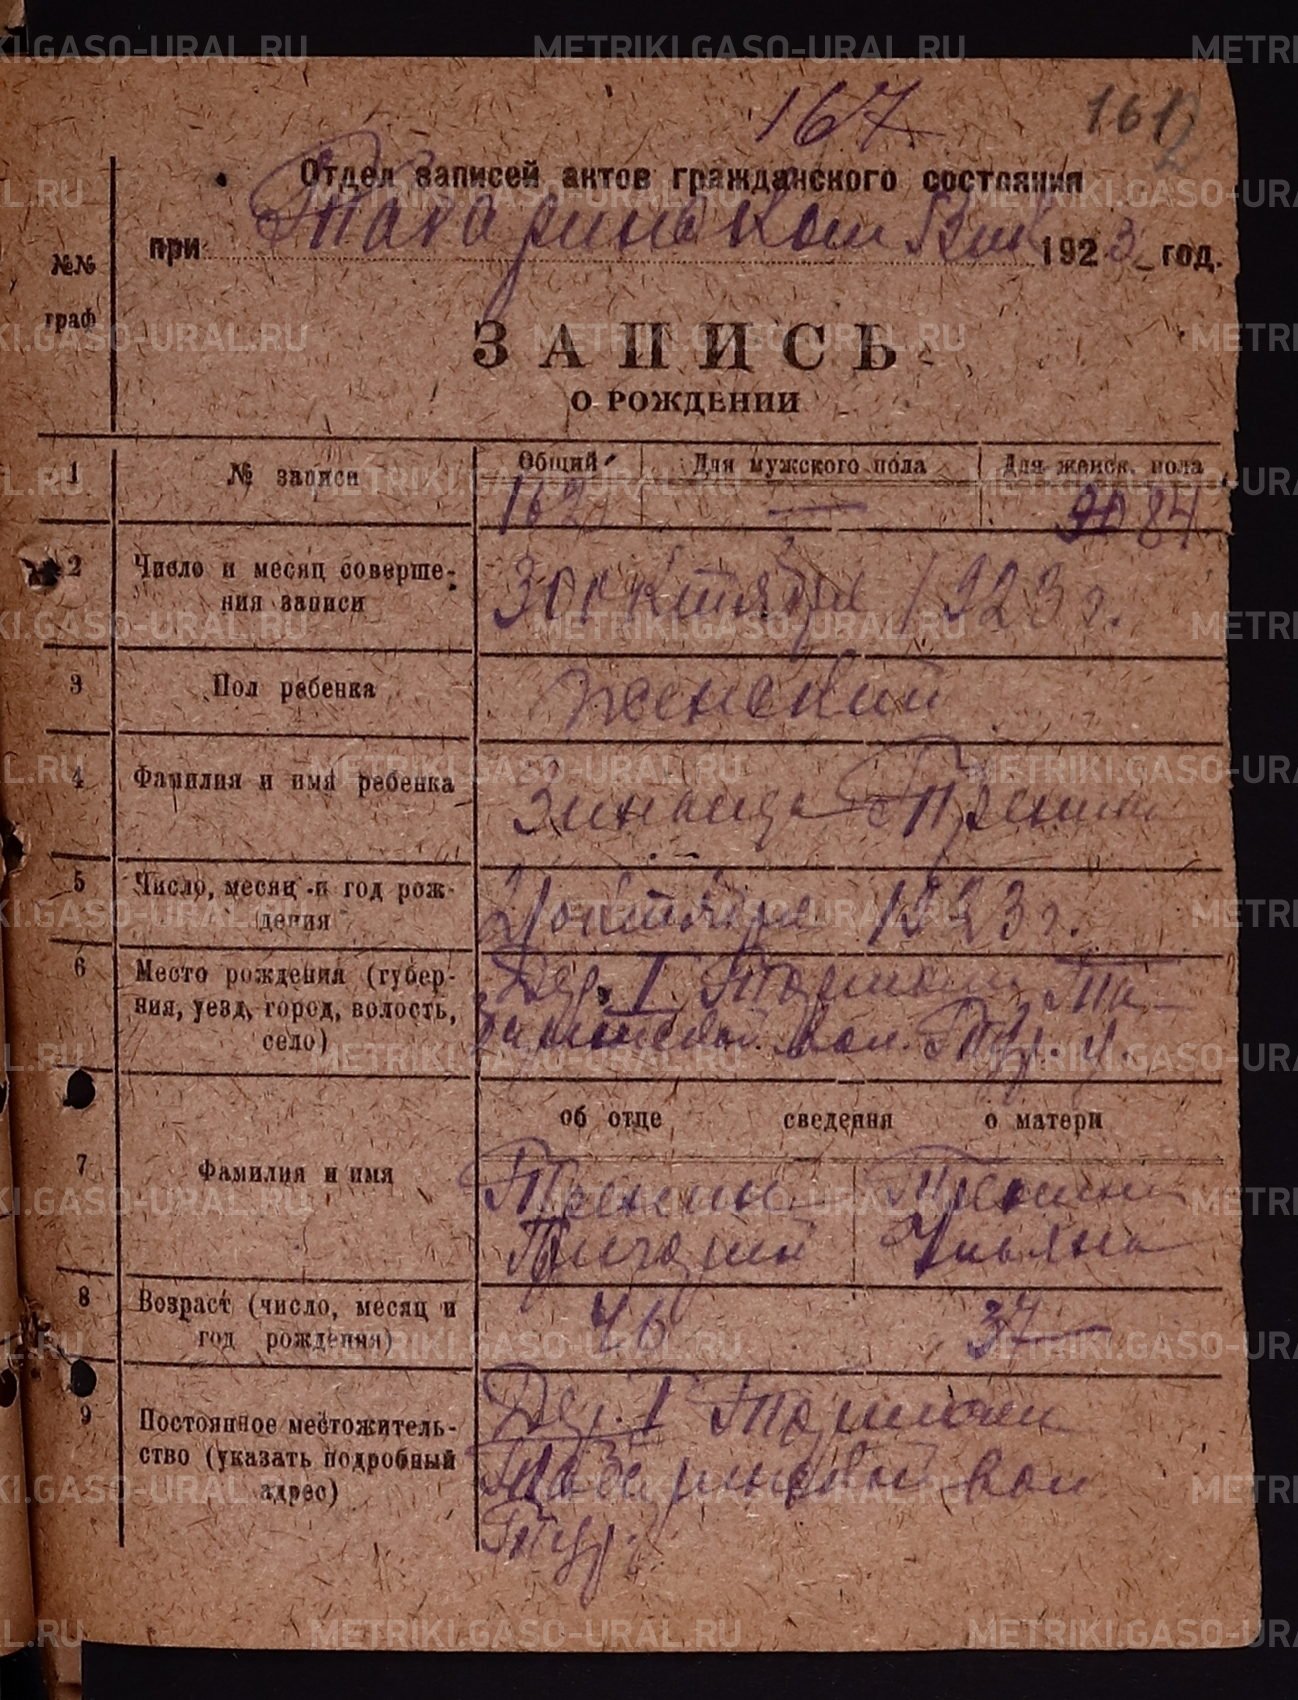 METRIKI.GASO-URAL.RU
167
161
2
Отдел записей актов гражданского состояния
при Табаринско Вол Вик 1923 год.
№№
граф
ЗАПИСЬ
О РОЖДЕНИИ
Общий Для мужского пола Для женск. пола
1 № записи 162 — 84
2 Число и месяц соверше-
ния записи
3 октября 1923 г.
3 Пол ребенка женский
4 Фамилия и имя ребенка Зинаида
5 Число, месяц и год рож-
дения
октября 1923 г.
6 Место рождения (губер-
ния, уезд, город, волость,
село)
Дер. I Та-
баринской вол. Тур. у.
об отце сведения о матери
7 Фамилия и имя
Григорий Ульяна
8 Возраст (число, месяц и
год рождения)
46 37
9 Постоянное местожитель-
ство (указать подробный
адрес)
Дер. I
Табаринской вол
Тур.